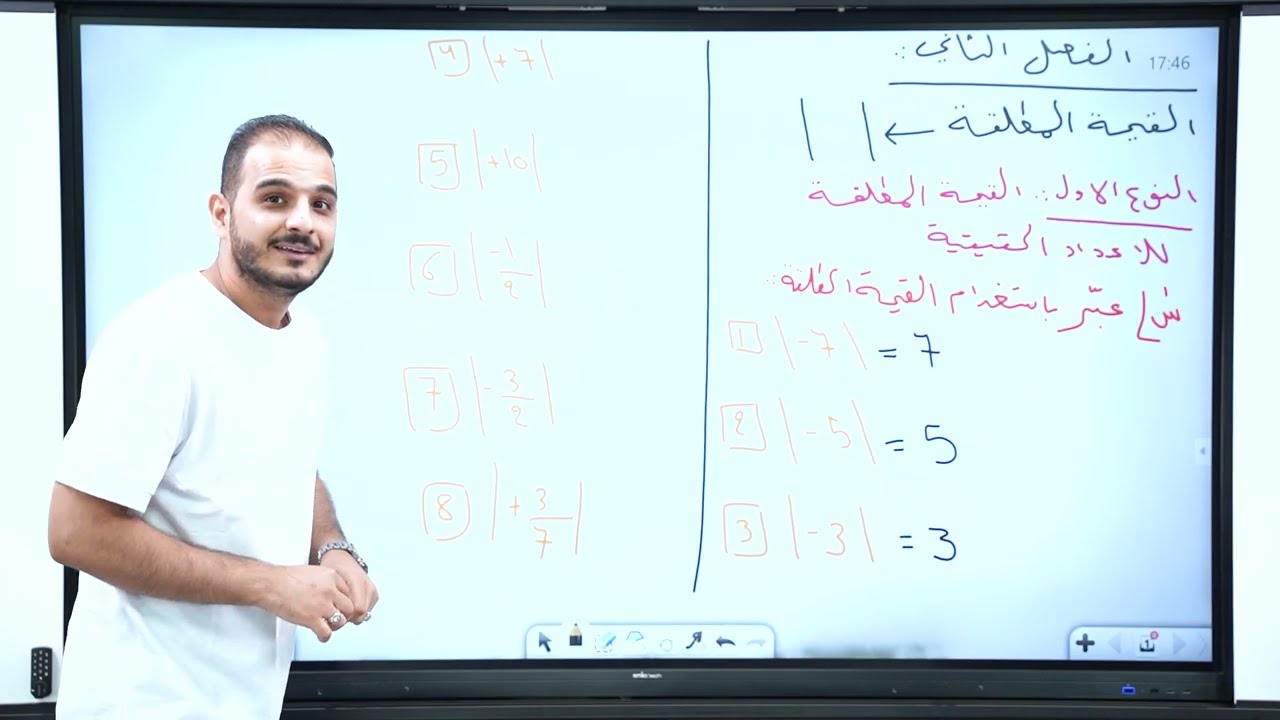 17:46
الفصل الثاني :.
القيمة المطلقة ← | |
النوع الاول :. القيمة المطلقة
للاعداد الحقيقية
س/ عبّر باستخدام القيمة المطلقة :.
1 |-7| = 7
2 |-5| = 5
3 |-3| = 3
4 |+7|
5 |+10|
6 |-1/2|
7 |-3/2|
8 |+3/7|